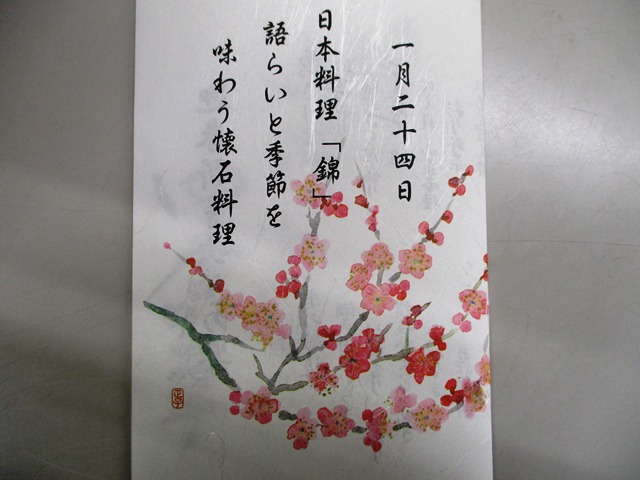 一月二十四日
日本料理「錦」
語らいと季節を
味わう懐石料理